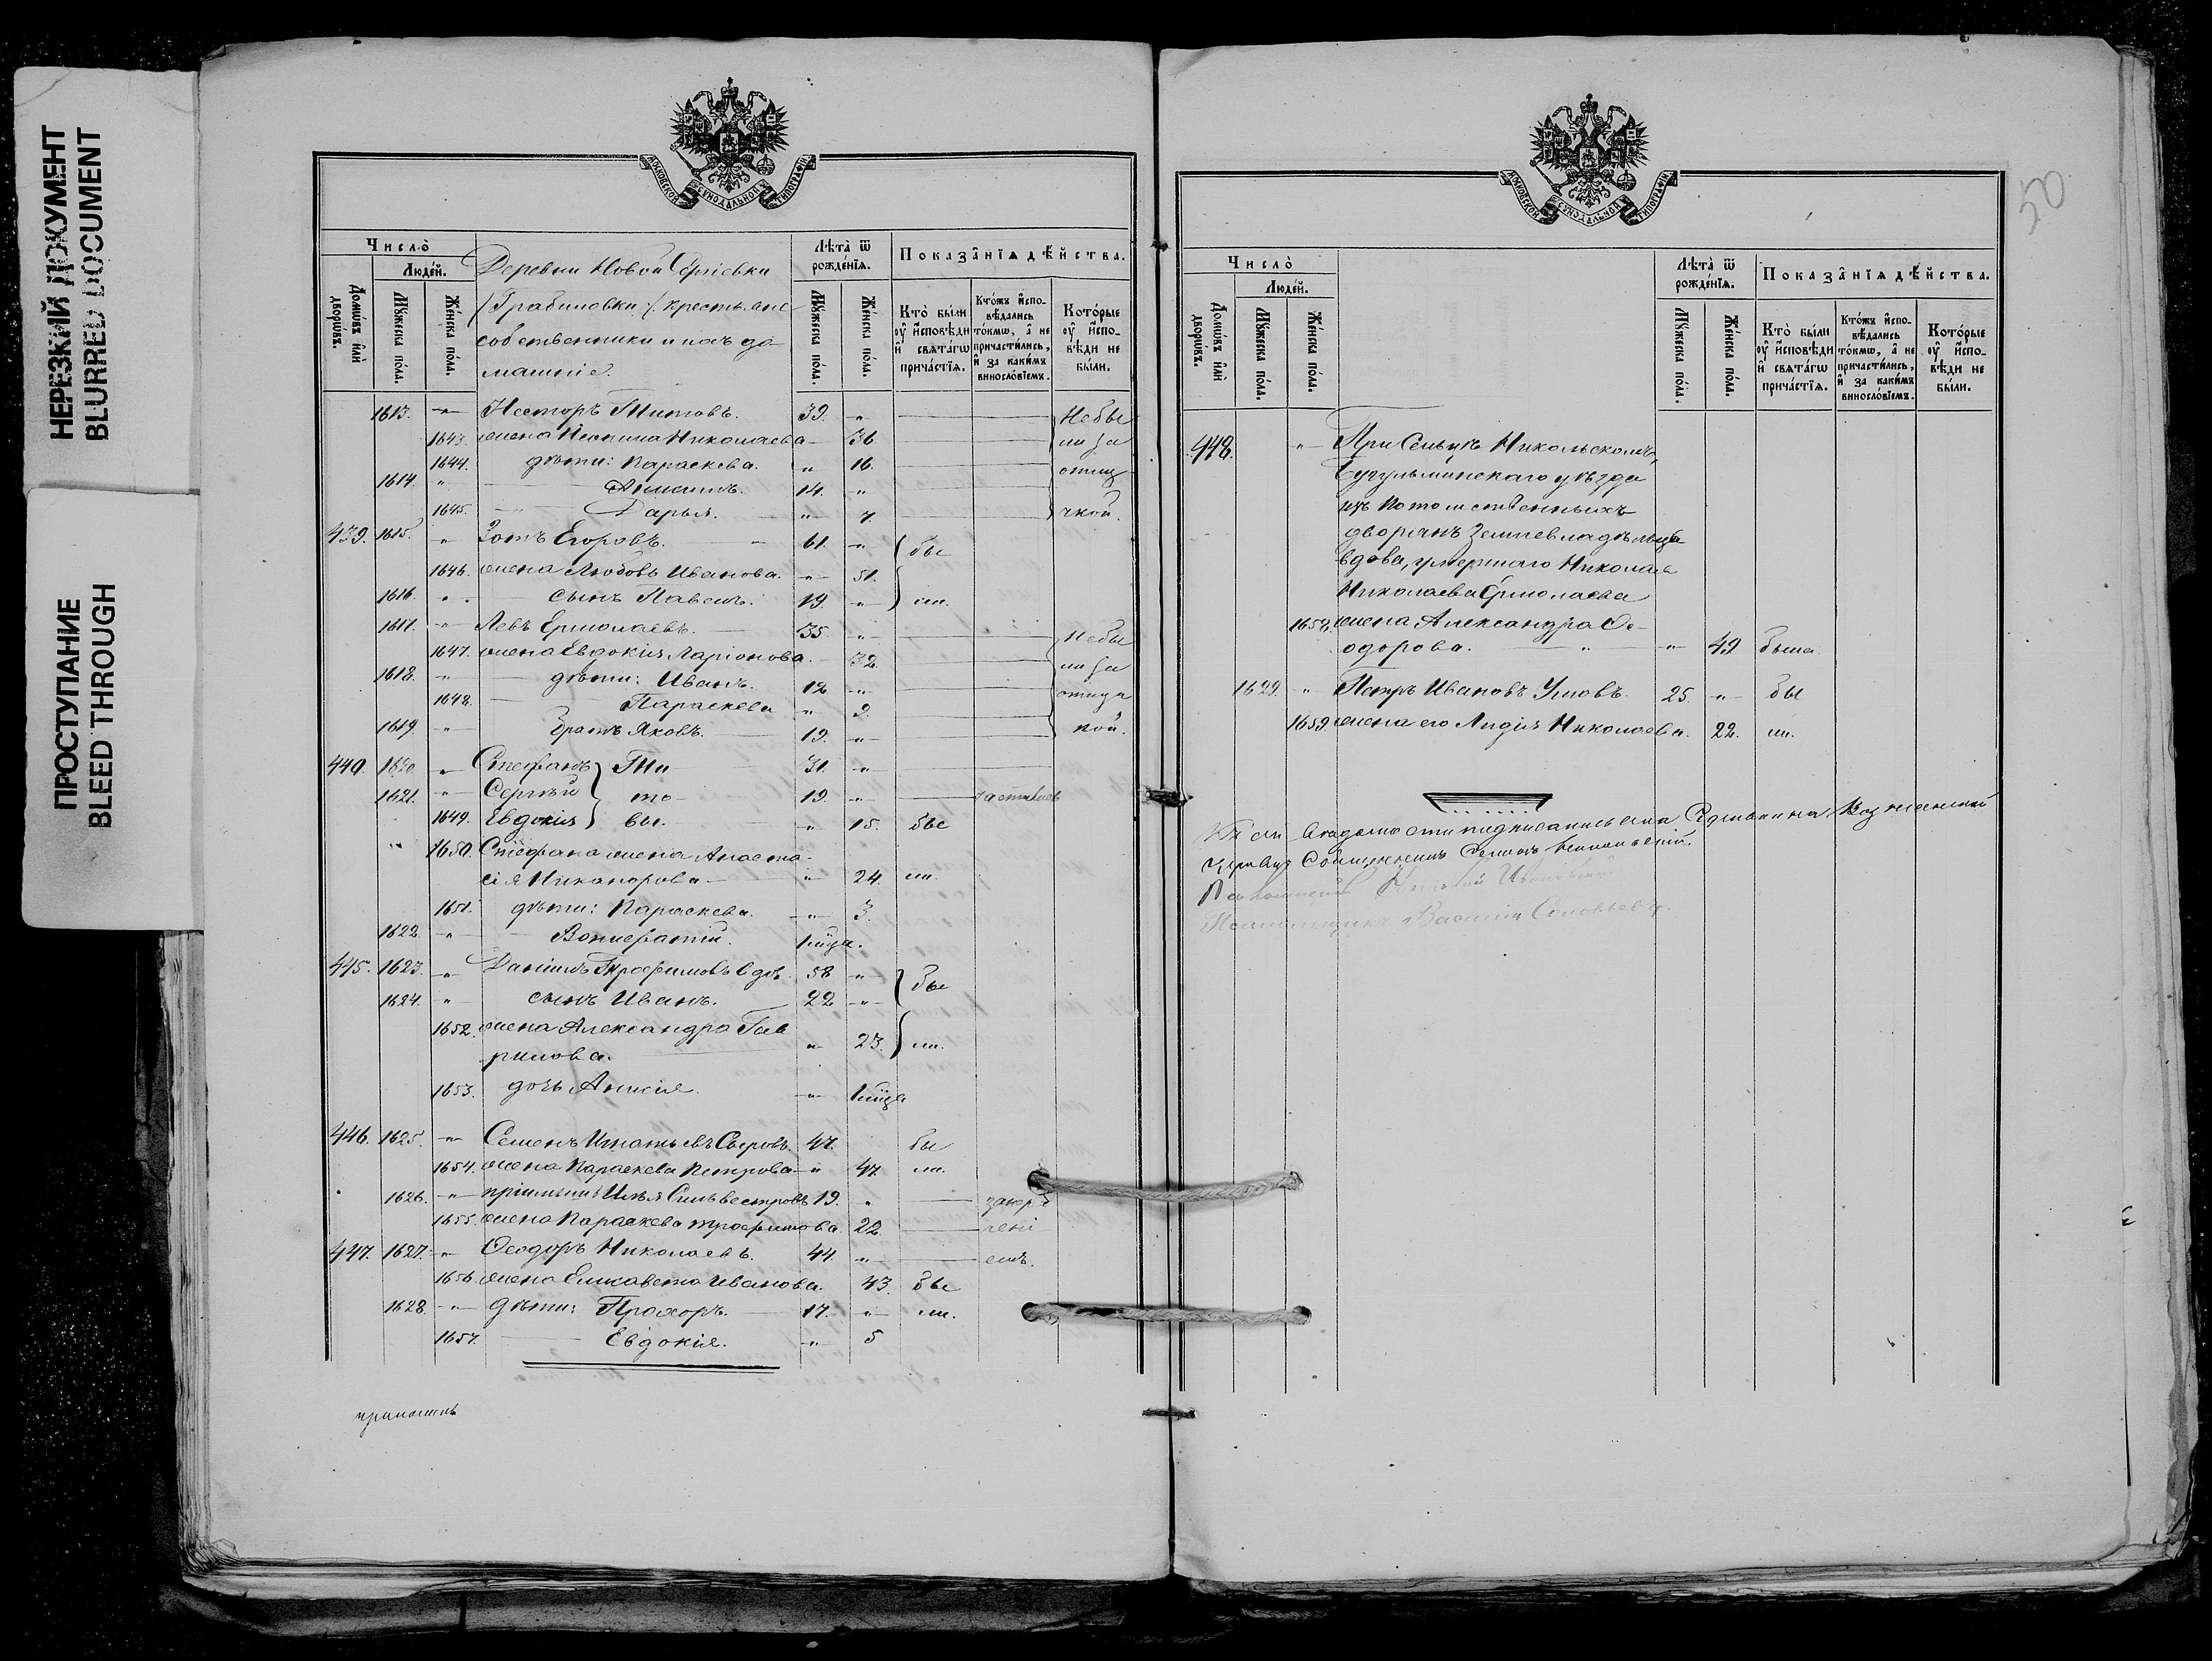 НЕРЕЗКИЙ ДОКУМЕНТ
BLURRED DOCUMENT
ПРОСТУПАНИЕ
BLEED THROUGH
МОСКОВСКОЙ СѴНОДАЛЬНОЙ ТИПОГРАФІИ
Число̀
Людей.
Домѡвъ и҆лѝ дворѡвъ.
Мꙋжеска пола.
Женска пола.
Деревни Новой Сергіевки
/Грабиловки:/. крестьяне
собственники и ихъ до
машніе.
Лѣта̀ ѿ рожденїѧ.
Мꙋжеска пола.
Женска пола.
Показанїѧ дѣйства.
Кто̀ были ᲂу҆ и҆сповѣди и҆ свѧтагѡ причастїѧ.
Ктожъ и҆сповѣдались токмѡ, а҆ не причастились, и҆ за какимъ винословїемъ.
Которые ᲂу҆ и҆сповѣди не были.
1613. " Несторъ Титовъ. 39. " Небы
1643. жена Николаева " 36 ли за
1644. дѣти: Параскева. " 16. отлу
1614. " 14. "
1645. Дарья. " 7. чкой.
439. 1615. " Зотъ Егоровъ. 61. " бы
1646. жена Любовь Иванова. " 51.
1616. " сынъ Павелъ. 19. " ли.
1617. " Левъ Ермолаевъ. 35. " Небы
1647. жена Евдокія Ларіонова. 32. ли за
1618. " дѣти: Иванъ. 12. " отлуч
1648. Параскева " 9.
1619. " братъ Яковъ. 19. " кой.
440. 1620. " Стефанъ Ти 31. "
1621. " Сергѣй то 19. "
1649. Евдокія вы. " 15. бы
1650. Стефана жена Анаста
сія Никанорова " 24. ли.
1651. дѣти: Параскева. " 3.
1622. " Вонифатій. 1 мѣца.
445. 1623. " Даніилъ Трофимовъ вдов. 58 " бы
1624. " сынъ Иванъ. 22 "
1652. жена Александра Гав
рилова. " 23. ли.
1653. дочь Анисія " 1 мѣца
446. 1625. " Семенъ Игнатьевъ Сыровъ. 47. бы
1654. жена Параскева Петрова " 47 ли.
1626. " пріимышъ Илья Сильвестровъ 19. "
1655. жена Параскева Трофимова 22
447. 1627. " Ѳеодоръ Николаевъ. 44. " емъ.
1656. жена Елисавета Иванова. 43. бы
1628. " дѣти: Прохоръ. 17. " ли.
1657. Евдокія. " 5
50
МОСКОВСКОЙ СѴНОДАЛЬНОЙ ТИПОГРАФІИ
Число̀
Людей.
Домѡвъ и҆лѝ дворѡвъ.
Мꙋжеска пола.
Женска пола.
Лѣта̀ ѿ рожденїѧ.
Мꙋжеска пола.
Женска пола.
Показанїѧ дѣйства.
Кто̀ были ᲂу҆ и҆сповѣди и҆ свѧтагѡ причастїѧ.
Ктожъ и҆сповѣдались токмѡ, а҆ не причастились, и҆ за какимъ винословїемъ.
Которые ᲂу҆ и҆сповѣди не были.
448. " При Сельцѣ Никольскомъ,
Бугульминскаго уѣзда
изъ потомственныхъ
дворянъ Землевладѣльца
вдова, умершаго Николая
Николаева Ермолаева
1658. жена Александра Ѳе-
одорова. " " 49 была.
1629. " Петръ Ивановъ Умовъ. 25. " бы
1659. жена его Лидія Николаева. 22. ли.
Къ сей вѣдомости подписались села
церкви Священникъ
Псаломщикъ Василій Соловьевъ.